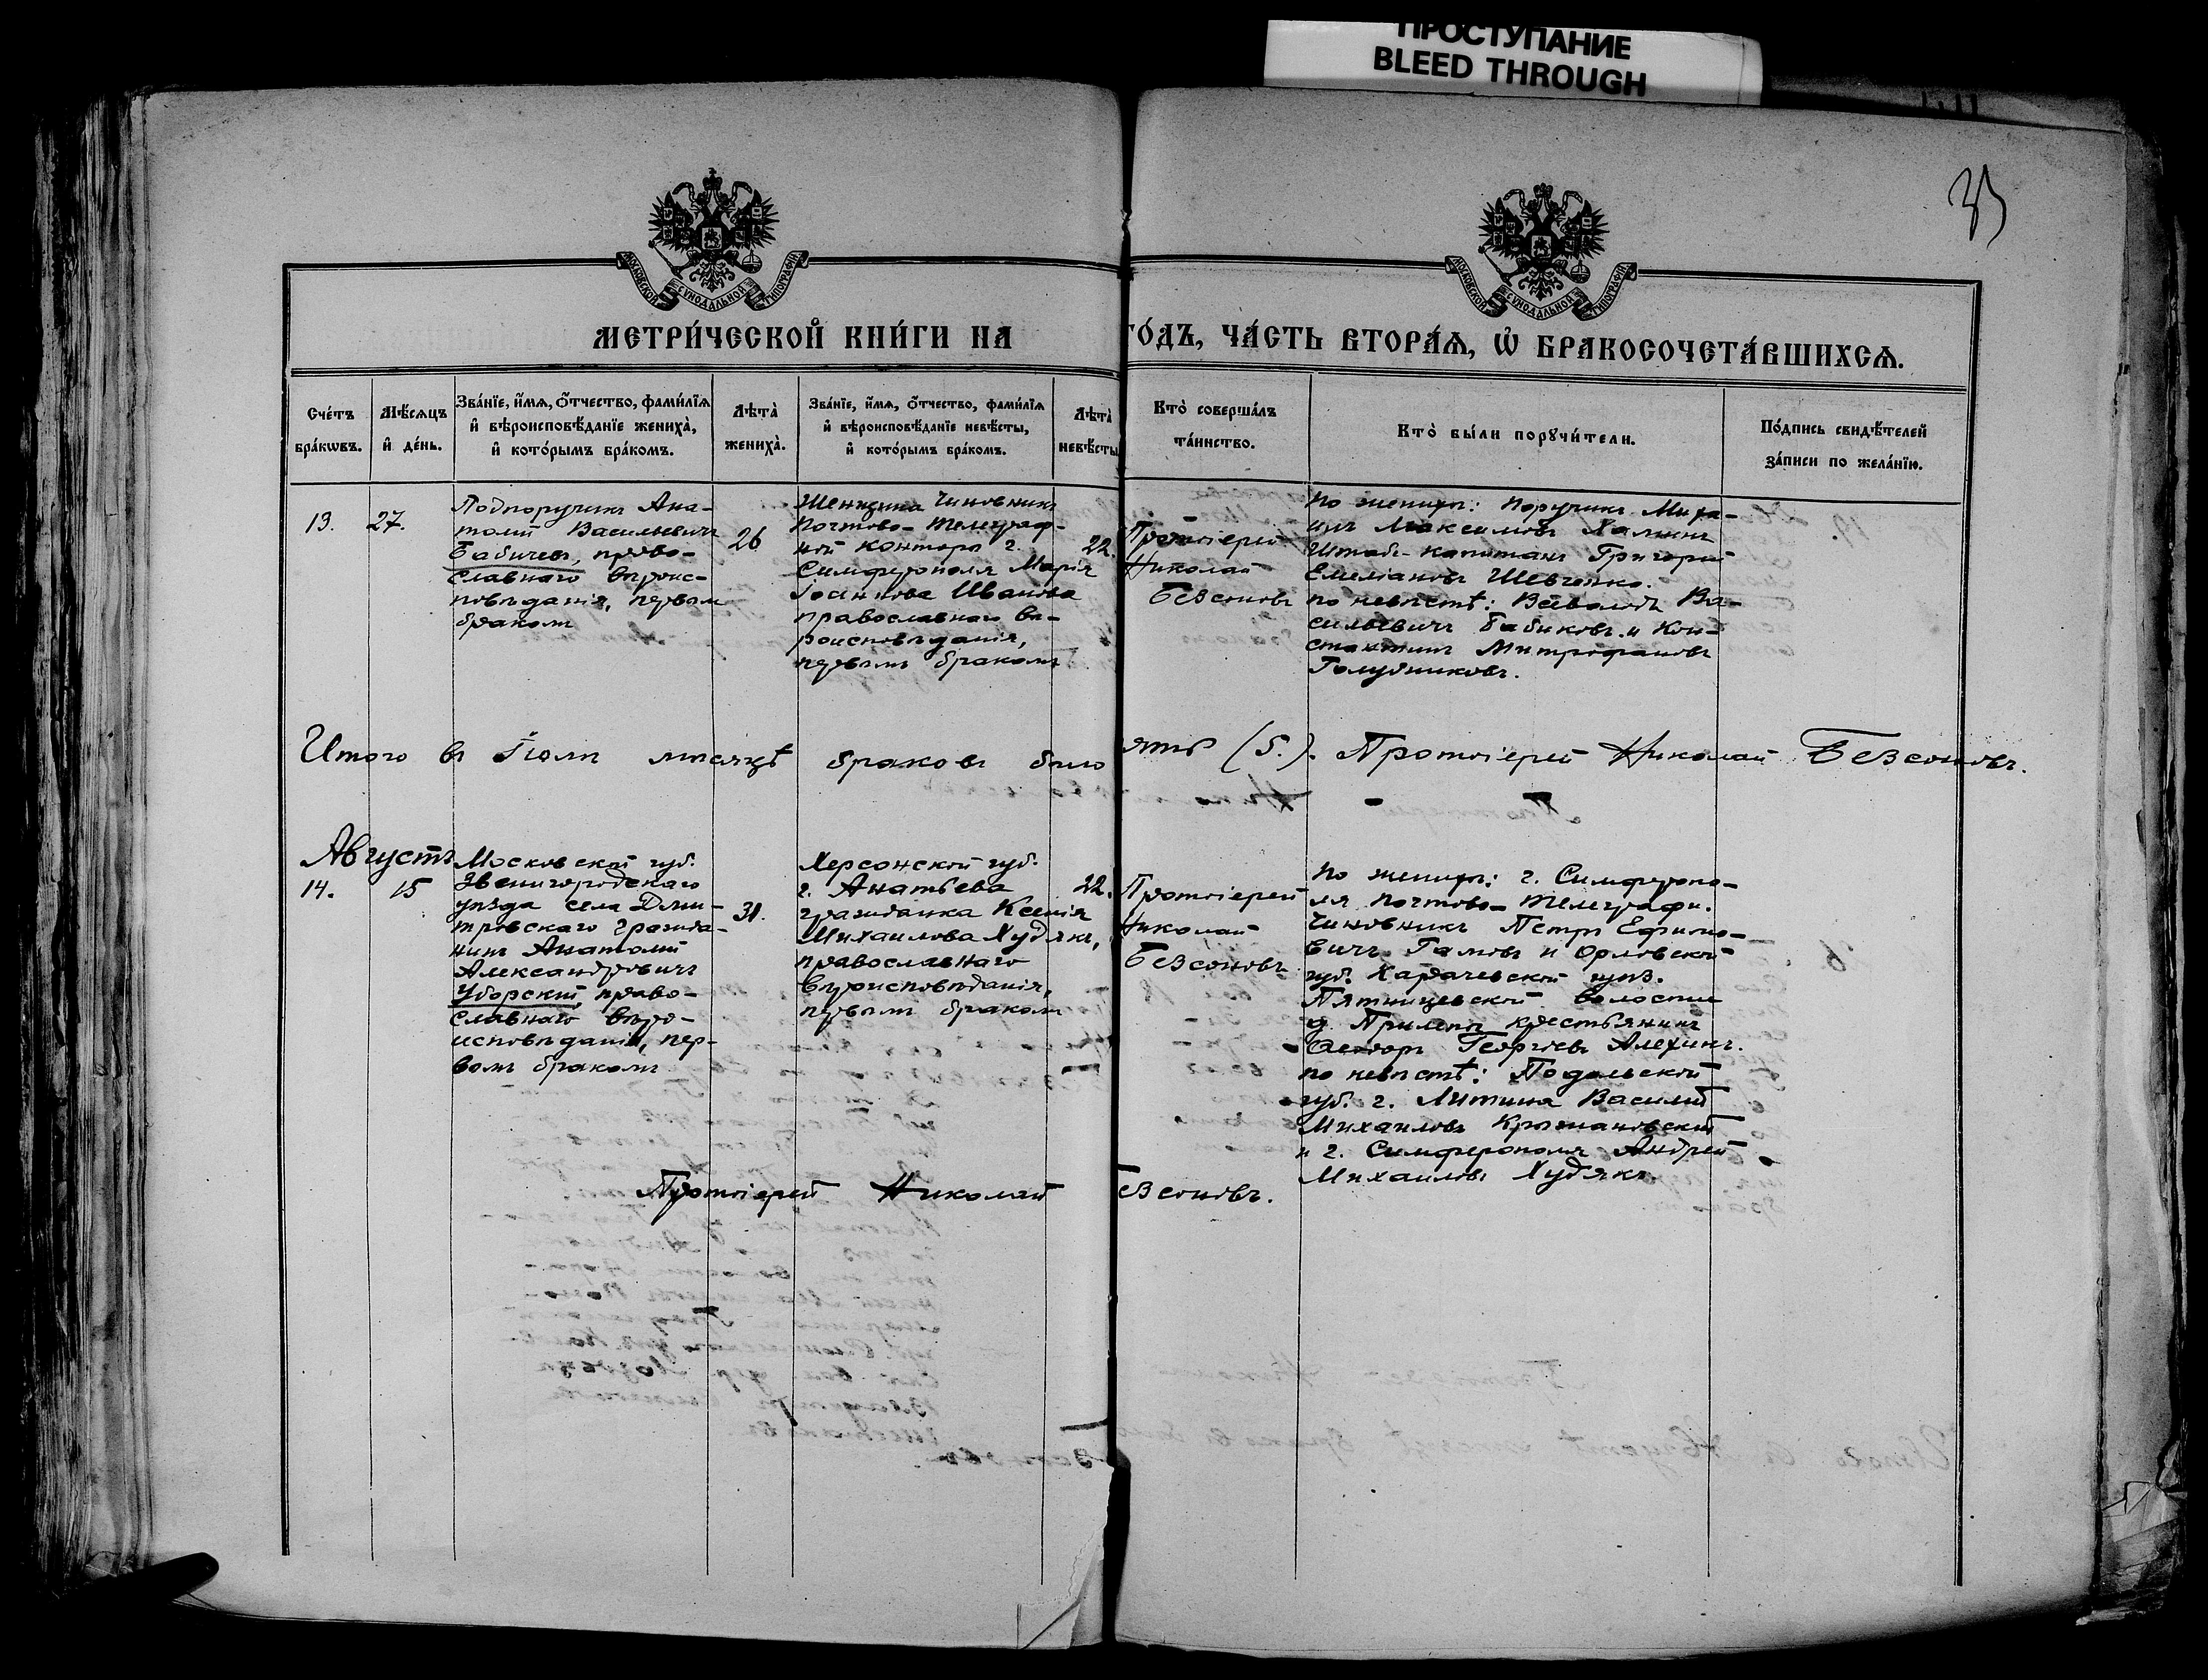 ПРОСТУПАНИЕ
BLEED THROUGH
МОСКОВСКОЙ СУНОДАЛЬНОЙ ТИПОГРАФІИ
МОСКОВСКОЙ СУНОДАЛЬНОЙ ТИПОГРАФІИ
МЕТРИ́ЧЕСКОЙ КНИ́ГИ НА
ГО́ДЪ, ЧА́СТЬ ВТОРА́Ѧ, Ѡ҆ БРАКОСОЧЕТА́ВШИХСѦ.
Сче́тъ
бра́кѡвъ.
Мѣ́сѧцъ
и҆ де́нь.
Зва́нїе, и҆́мѧ, ѻ҆́тчество, фами́лїѧ
и҆ вѣроисповѣ́данїе жениха̀,
и҆ кото́рымъ бра́комъ.
Лѣта̀
жениха̀.
Зва́нїе, и҆́мѧ, ѻ҆́тчество, фами́лїѧ
и҆ вѣроисповѣ́данїе невѣ́сты,
и҆ кото́рымъ бра́комъ.
Лѣта̀
невѣ́сты
Кто̀ соверша́лъ
та́инство.
Кто̀ бы́ли порꙋчи́тели.
По́дпись свидѣ́телей
за́писи по жела́нїю.
13.
27.
Подпоручикъ Ана-
толий Васильевичъ
Бабичевъ, право-
славнаго вѣроис-
повѣданія, первым
браком
26
Женщина Чиновникъ
Почтово-Телеграф-
ной конторы г.
Симферополя Марія
Іоаннова Иванова
православнаго вѣ-
роисповѣданія,
первымъ бракомъ
22.
Протоіерей
Николай
Безсоновъ
По женихѣ: Поручикъ Миха-
илъ Максимовъ
Штабс-капитанъ Григорий
Емеліановъ Шевченко.
по невѣстѣ: Всеволодъ Ва-
сильевичъ Бабиковъ и Кон-
стантинъ Митрофановъ
Голубниковъ.
Итого въ Іюлѣ мѣсяцѣ браковъ было
ять (5.). Протоіерей Николай Безсоновъ.
Августъ
14.
15
Московской губ.
Звенигородскаго
уѣзда села Дми-
тровскаго гражда-
нинъ Анатолий
Александровичъ
Уборский, право-
славнаго вѣро-
исповѣданія, пер-
вымъ бракомъ
31.
Херсонской губ.
г. Ананьева
гражданка Ксенія
Михаилова Худякъ,
православнаго
вѣроисповѣданія,
первымъ бракомъ
22.
Протоіерей
Николай
Безсоновъ
По женихѣ: г. Симферопо-
ля Почтово-Телеграфн.
Чиновникъ Петръ Ефимо-
вичъ Гамовъ и Орловской
губ. Карачевской уѣз.
Пятницевской волости
д. крестьянинъ
Ѳеодоръ Георгіевъ Алехинъ.
по невѣстѣ: Подольской
губ. г. Литина Василий
Михаиловъ Крыжановский
и г. Симферополя Андрей
Михаиловъ Худякъ.
Протоіерей Николай
Безсоновъ.